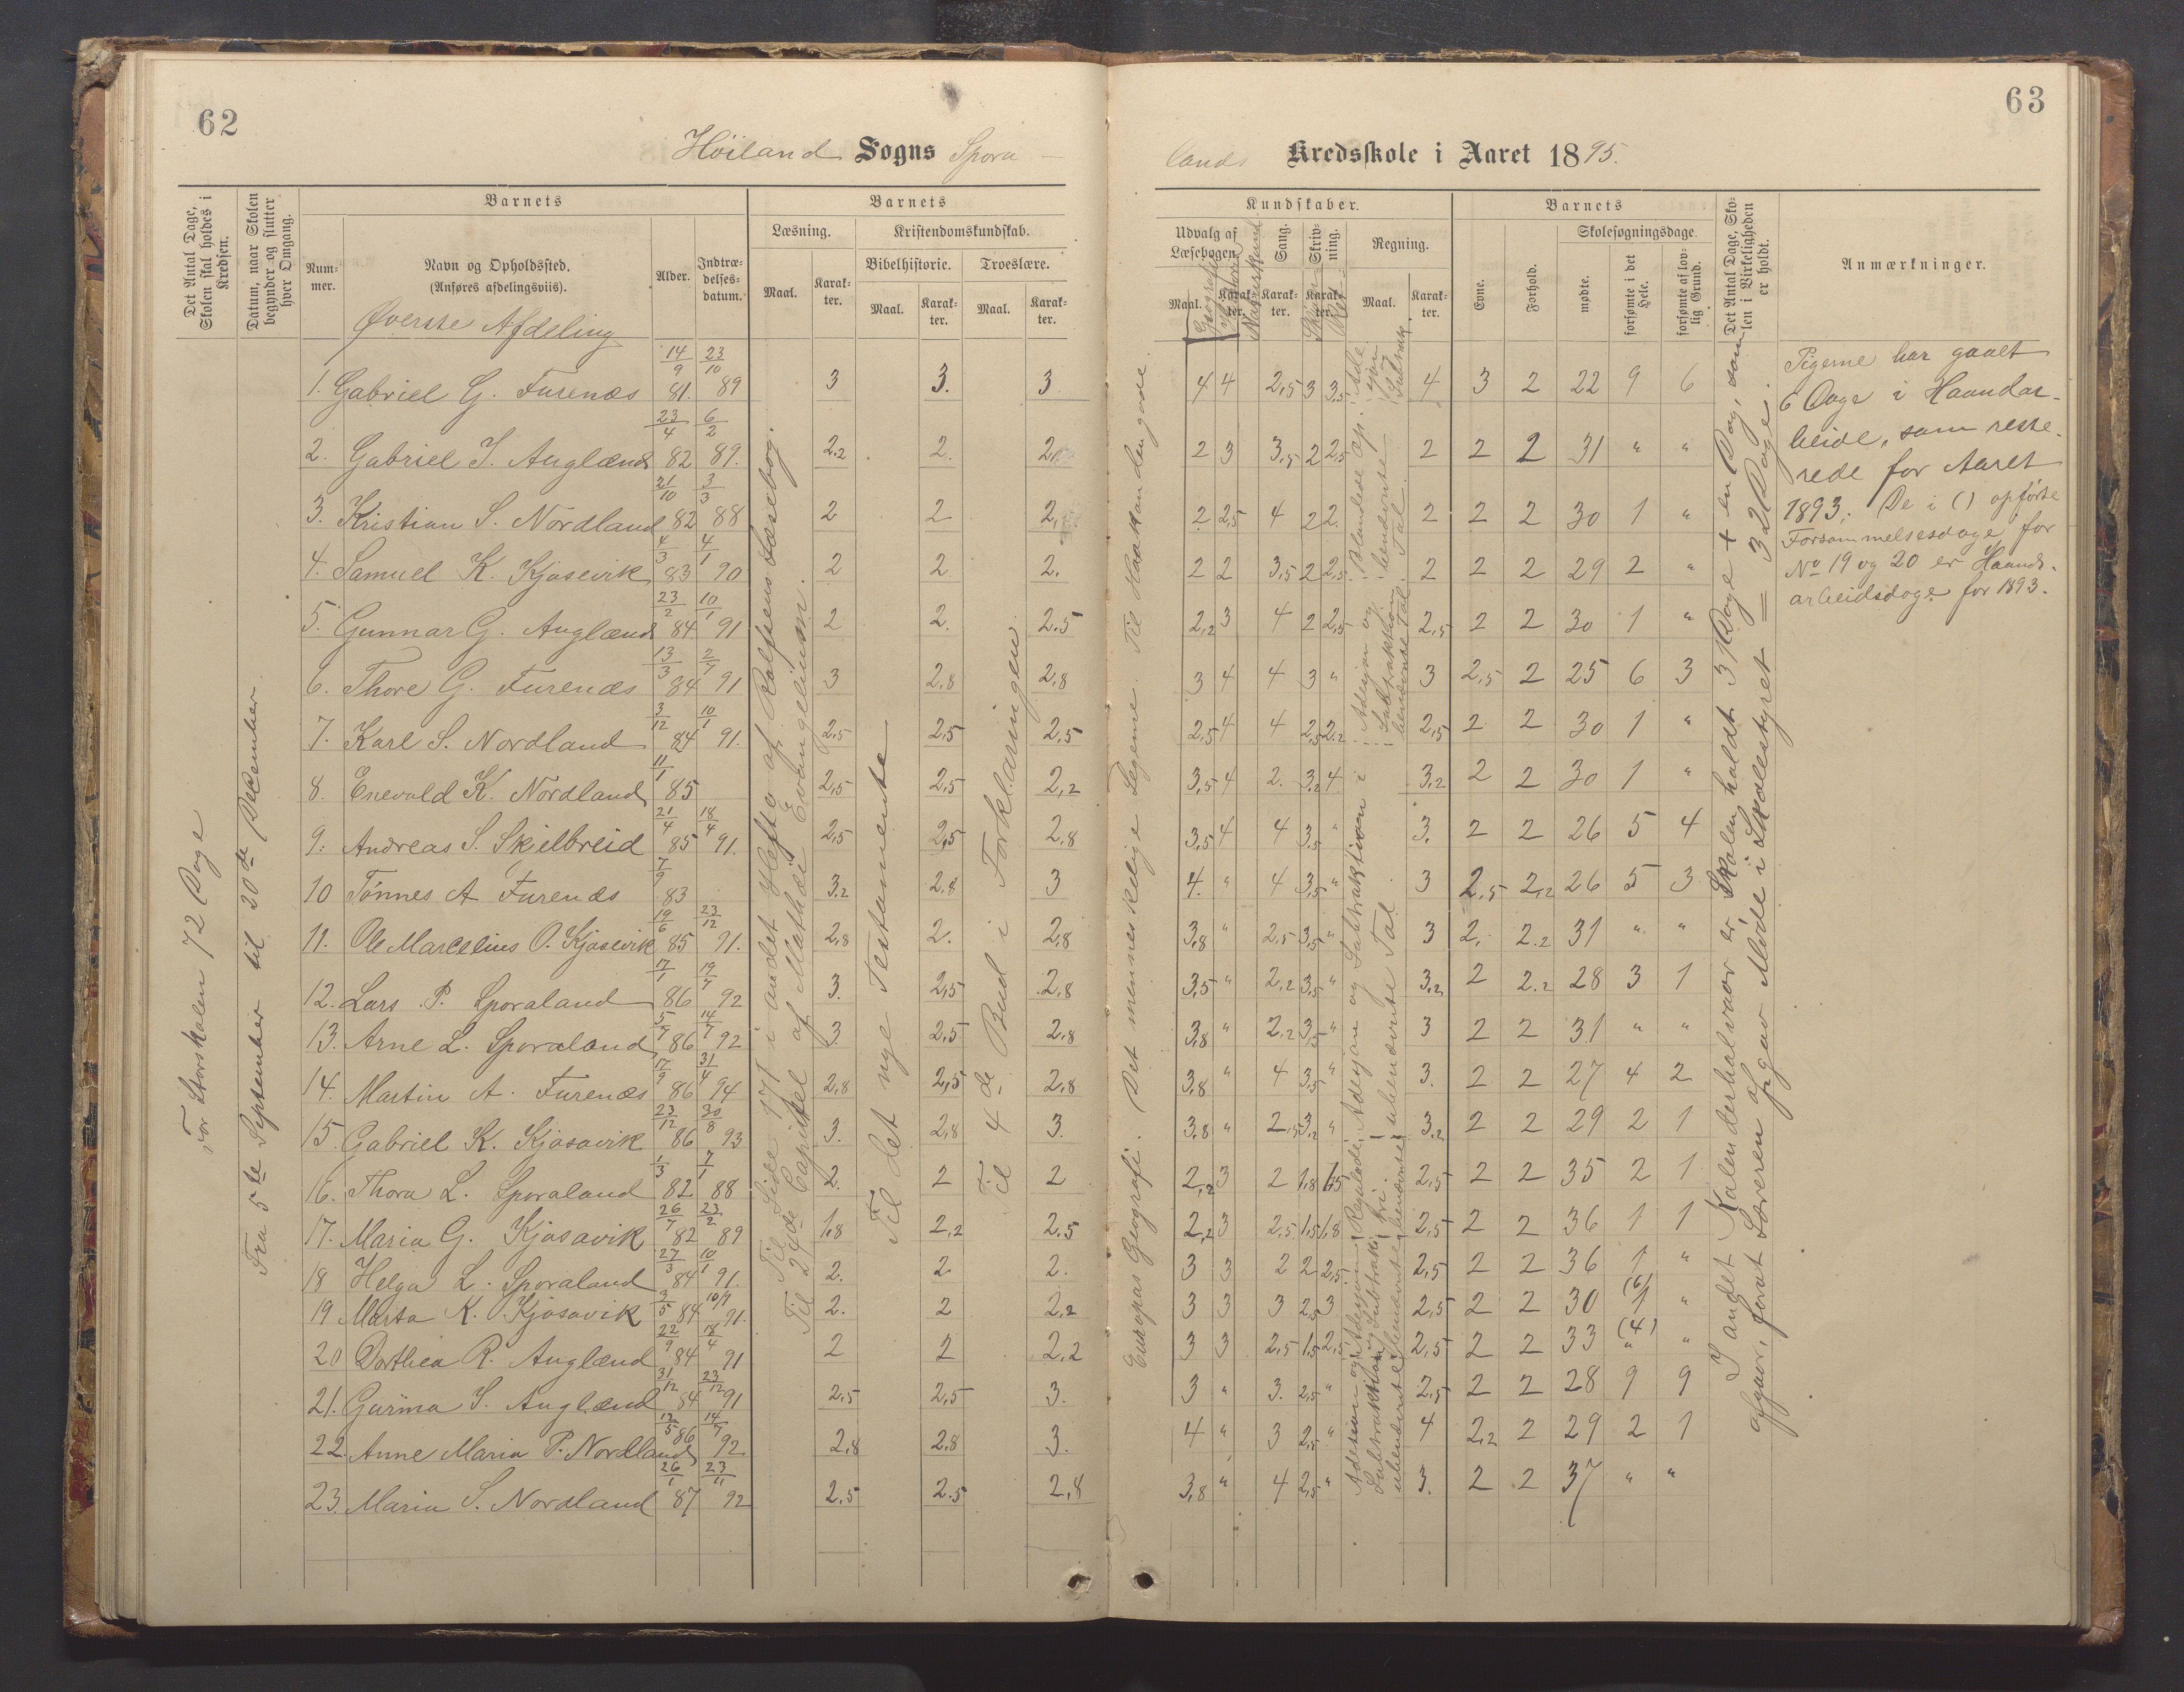 62
Höiland Sogns Spora-
Det Antal Dage, Skolen skal holdes i Kredsen.
Datum, naar Skolen begynder og slutter hver Omgang.
Barnets
Barnets
Nummer.
Navn og Opholdssted.
(Anføres afdelingsviis).
Alder.
Indtrædelsesdatum.
Læsning.
Kristendomskundskab.
Bibelhistorie.
Troeslære.
Maal.
Karakter.
Maal.
Karakter.
Maal.
Karakter.
Øverste Afdeling
For Storskolen 72 Dage
Fra 5te September til 20de December.
1. Gabriel G. Furenæs 14/9 81. 23/10 89 3 3. 3
2. Gabriel T. Auglænd 23/4 82 6/2 89. 2.2 2. 2.
3. Kristian S. Nordland 21/10 82 3/3 88 2 2 2.
4. Samuel K. Kjosevik 4/3 83 4/1 90 2 2 2.
5. Gunnar G. Auglænd 23/2 84 10/1 91 2 2. 2.5
6. Thore G. Furenæs 13/3 84 2/7 91 3 2.8 2.8
7. Karl S. Nordland 3/12 84 10/1 91. 2.5 2.5 2.5
8. Enevald K. Nordland 11/1 85 2.5 2.5 2.2
9. Andreas S. Skilbreid 21/4 85 18/4 91. 2.5 2.5 2.8
10 Tönnes A Furenæs 7/9 83 3.2 2.8 3
11. Ole Marcelius O. Kjosevik 19/6 85 23/12 91. 2.8 2. 2.8
12. Lars P. Sporaland 17/1 86 19/7 92 3. 2.5 2.8
13. Arne L. Sporaland 5/7 86 14/7 92 3 2.5 2.8
14. Martin A. Furenæs 17/9 86 31/4 94 2.8 2.5 2.8
15. Gabriel K. Kjosavik 23/12 86 30/8 93 3. 2.8 3.
16. Thora L. Sporaland 1/3 82 7/1 88 2. 2 2
17. Maria G. Kjosavik 26/7 82 23/2 89 1.8 2.2 2.5
18 Helga L. Sporaland 27/3 84 10/1 91. 2. 2 2.
19 Marta K. Kjosavik 3/5 84 10/1 91. 2. 2 2.2
20 Dorthea R. Auglænd 22/9 84 18/4 91 2 2 2.2
21. Gurina T. Auglænd 31/12 84 23/12 91 2.5 2.5 3.
22. Anne Maria P. Nordland 12/5 86 14/7 92 2.8 2.8 3.
23. Maria S. Nordland 26/1 87 23/11 92 2.5 2.5 2.8
Til Side 171 i andet Hefte af Rolfsens Læsebog.
Til 24de Capitel af Mathæi Evangelium.
Til det nye Testamente
Til 4de Bud i Forklaringen
63
lands Kredsskole i Aaret 1895.
Kundskaber.
Barnets
Udvalg af Læsebogen.
Sang.
Skrivning.
Regning.
Evne.
Forhold.
Skolesøgningsdage.
mødte.
forsømte i det Hele.
forsømte af lovlig Grund.
Det Antal Dage, Skolen i Virkeligheden er holdt.
Anmærkninger.
Maal.
Karakter.
Karakter.
Karakter.
Maal.
Karakter.
Geografi
Historie
Naturkund.
Europas Geografi. Det menneskelige Legeme. Til Haakon den gode.
4 4 2.5 3 3.5 4 3 2 22 9 6
2 3 3.5 2 2.5 2 2 2 31 " "
2 2.5 4 2 2. 2 2 2 30 1 "
2 2 3.5 2 2.5 2 2 2 29 2 "
2.2 3 4 2 2.5 2.5 2 2 30 1 "
3 4 4 3 " 3 2.5 2 25 6 3
2.5 4 4 2.5 2.2 2.5 2 2 30 1 "
3.5 4 2. 3.2 4 3.2 2 2 30 1 "
3.5 4 4 3.5 " 3. 2 2 26 5 4
4. " 4 3.5 " 3 2.5 2.2 26 5 3
3.8 " 2.5 3.5 " 3 2. 2.2 31 " "
3.5 " 2.2 3.5 " 3.2 2 2.2 28 3 1
3.8 " 2.2 3.5 " 3 2 2 31 " "
3.8 " 4 3.5 " 3. 2 2 27 4 2
3.8 " 2.5 3.2 " 3.2 2 2 29 2 1
2.2 3 2 1.8 1.5 2.5 2 2 35 2 1
2.2 3 2.5 1.5 1.8 2.5 2 2 36 1 1
3 3 2 2 2.5 2.5 2 2 36 1 "
3 3 3 2.5 3 2.5 2 2 30 (6) 1 "
3 3 2.5 1.5 2.5 2.5 2 2 33 (4) " "
3 " 3. 2.5 " 2.5 2 2 28 9 9
4 " 3 2.5 " 4 2.2 2 29 2 1
3.8 " 4 2.5 " 3. 2 2 37 " "
Blandede Op.
benævnte Tal.
Adesjon og Subtraktion benævnte Tal.
Adesjon og Subtraktion i ubenævnte Tal
Adesjon og Subtraktion ubenævnte
I andet Kalenderhalvaar er Skolen holdt 31 Dage + en Dag, som
afgaar, forat Læreren afgav Møde i Skolestyret = 32 Dage.
Pigerne har gaaet
6 Dage i Haandar-
beide, som reste-
rede for Aaret
1893. De i () opførte
Forsømmelsesdage for
No 19 og 20 er Haand-
arbeidsdage for 1893.